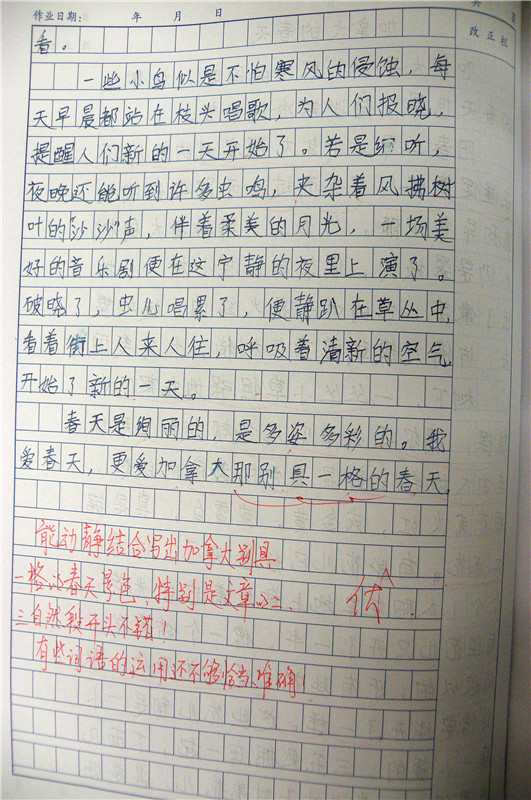 作业日期: 年 月 日
改正栏
看。
一些小鸟似是不怕寒风的侵蚀，每
天早晨都站在枝头唱歌，为人们报晓，
提醒人们新的一天开始了。若是细听，
夜晚还能听到许多虫鸣，夹杂着风拂树
叶的沙沙声，伴着柔美的月光，一场美
好的音乐剧便在这宁静的夜里上演了。
破晓了，虫儿唱累了，便静趴在草丛中，
看着街上人来人往，呼吸着清新的空气，
开始了新的一天。
春天是绚丽的，是多姿多彩的。我
爱春天，更爱加拿大那别具一格的春天。
能动静结合写出加拿大别具
一格的春天景色，特别是文章的二、
三自然段开头不错！
优
有些词语的运用还不够恰当准确